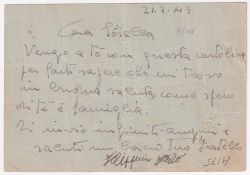 21.3.43
Cara Sorella
Vengo a te con questa cartolina
per farti sapere che mi trovo
in buona salute, come spero
di te è famiglia
Ti invio infiniti auguri e
saluti un bacio tuo fratello